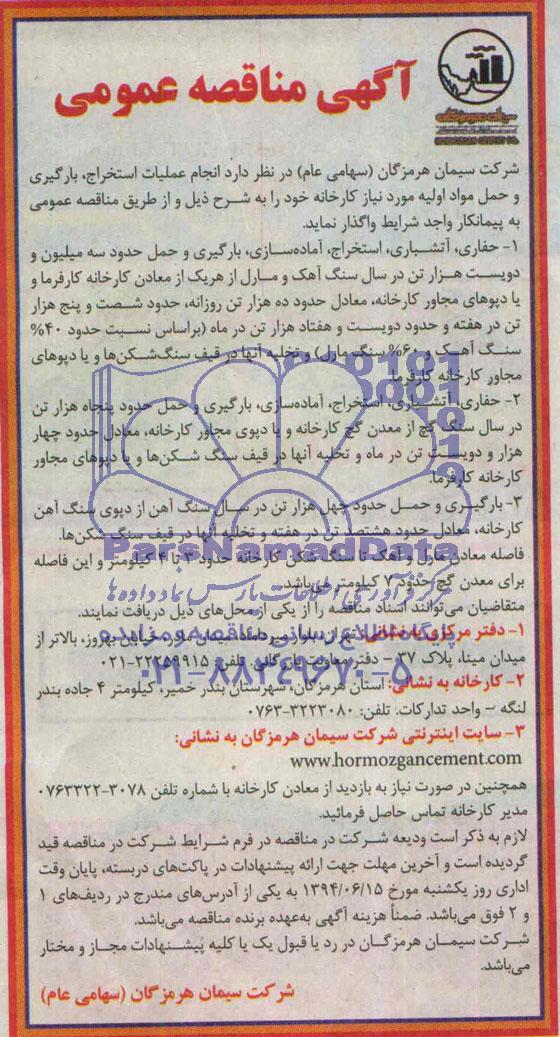 آگهی مناقصه عمومی
سیمان هرمزگان
شرکت سیمان هرمزگان (سهامی عام) در نظر دارد انجام عملیات استخراج، بارگیری
و حمل مواد اولیه مورد نیاز کارخانه خود را به شرح ذیل و از طریق مناقصه عمومی
به پیمانکار واجد شرایط واگذار نماید.
۱- حفاری، آتشباری، استخراج، آماده‌سازی، بارگیری و حمل حدود سه میلیون و
دویست هزار تن در سال سنگ آهک و مارل از هریک از معادن کارخانه کارفرما و
یا دپوهای مجاور کارخانه، معادل حدود ده هزار تن روزانه، حدود شصت و پنج هزار
تن در هفته و حدود دویست و هفتاد هزار تن در ماه (براساس نسبت حدود ۴۰%
سنگ آهک و ۶۰% سنگ مارل) و تخلیه آنها در قیف سنگ‌شکن‌ها و یا دپوهای
مجاور کارخانه کارفرما.
۲- حفاری، آتشباری، استخراج، آماده‌سازی، بارگیری و حمل حدود پنجاه هزار تن
در سال سنگ گچ از معدن گچ کارخانه و یا دپوی مجاور کارخانه، معادل حدود چهار
هزار و دویست تن در ماه و تخلیه آنها در قیف سنگ شکن‌ها و یا دپوهای مجاور
کارخانه کارفرما.
۳- بارگیری و حمل حدود چهل هزار تن در سال سنگ آهن از دپوی سنگ آهن
کارخانه، معادل حدود هشتصد تن در هفته و تخلیه آنها در قیف سنگ شکن‌ها.
فاصله معادن مارل و آهک تا سنگ شکن کارخانه حدود ۳ تا ۴ کیلومتر و این فاصله
برای معدن گچ حدود ۷ کیلومتر می‌باشد.
متقاضیان می‌توانند اسناد مناقصه را از یکی از محل‌های ذیل دریافت نمایند.
۱- دفتر مرکزی به نشانی: تهران، بلوار میرداماد، میدان مادر، خیابان بهروز، بالاتر از
میدان مینا، پلاک ۳۷ – دفتر معاونت بازرگانی. تلفن: ۲۲۲۵۹۹۱۵-۰۲۱
۲- کارخانه به نشانی: استان هرمزگان، شهرستان بندر خمیر، کیلومتر ۴ جاده بندر
لنگه – واحد تدارکات. تلفن: ۳۲۲۳۰۸۰-۰۷۶۳
۳- سایت اینترنتی شرکت سیمان هرمزگان به نشانی:
www.hormozgancement.com
همچنین در صورت نیاز به بازدید از معادن کارخانه با شماره تلفن ۳۰۷۸-۰۷۶۳۳۲۲
مدیر کارخانه تماس حاصل فرمائید.
لازم به ذکر است ودیعه شرکت در مناقصه در فرم شرایط شرکت در مناقصه قید
گردیده است و آخرین مهلت جهت ارائه پیشنهادات در پاکت‌های دربسته، پایان وقت
اداری روز یکشنبه مورخ ۱۳۹۴/۰۶/۱۵ به یکی از آدرس‌های مندرج در ردیف‌های ۱
و ۲ فوق می‌باشد. ضمناً هزینه آگهی به‌عهده برنده مناقصه می‌باشد.
شرکت سیمان هرمزگان در رد یا قبول یک یا کلیه پیشنهادات مجاز و مختار
می‌باشد.
شرکت سیمان هرمزگان (سهامی عام)
ParsNamadData
مرکز فرآوری اطلاعات پارس نماد داده‌ها
پایگاه اطلاع رسانی مناقصه و مزایده
۰۲۱-۸۸۳۴۹۶۷۰-۵